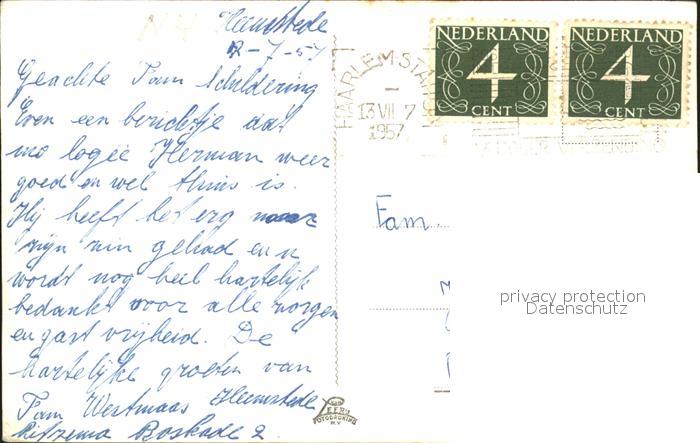 Heemstede
-7-57
Geachte Fam Schuldering
Even een berichtje dat
mo logee Herman weer
goed en wel thuis is.
Hij heeft het erg naar
zijn zin gehad en u
wordt nog heel hartelijk
bedankt voor alle zorgen
en gastvrijheid. De
hartelijke groeten van
Fam Westmaas Heemstede
Ritzema Boskade 2
NEDERLAND
4
CENT
NEDERLAND
4
CENT
HAARLEM STATION
13 VII 7
1957
Fam.
privacy protection
Datenschutz
VAN LEER'S
FOTODRUKIND.
N.V.